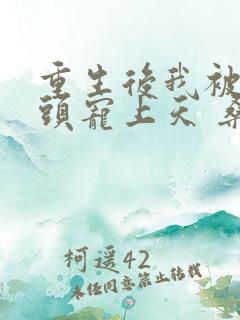 重生後我被
頭寵上天 桑
柯遥42
未经同意禁止转载